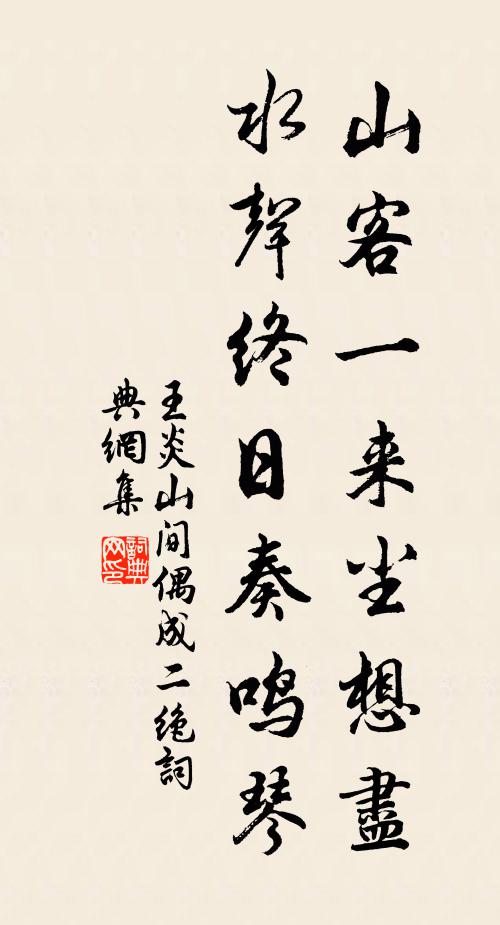 山客一来尘想盡
水聲终日奏鸣琴
王炎山间偶成二绝詞
典網集
詞典
网印